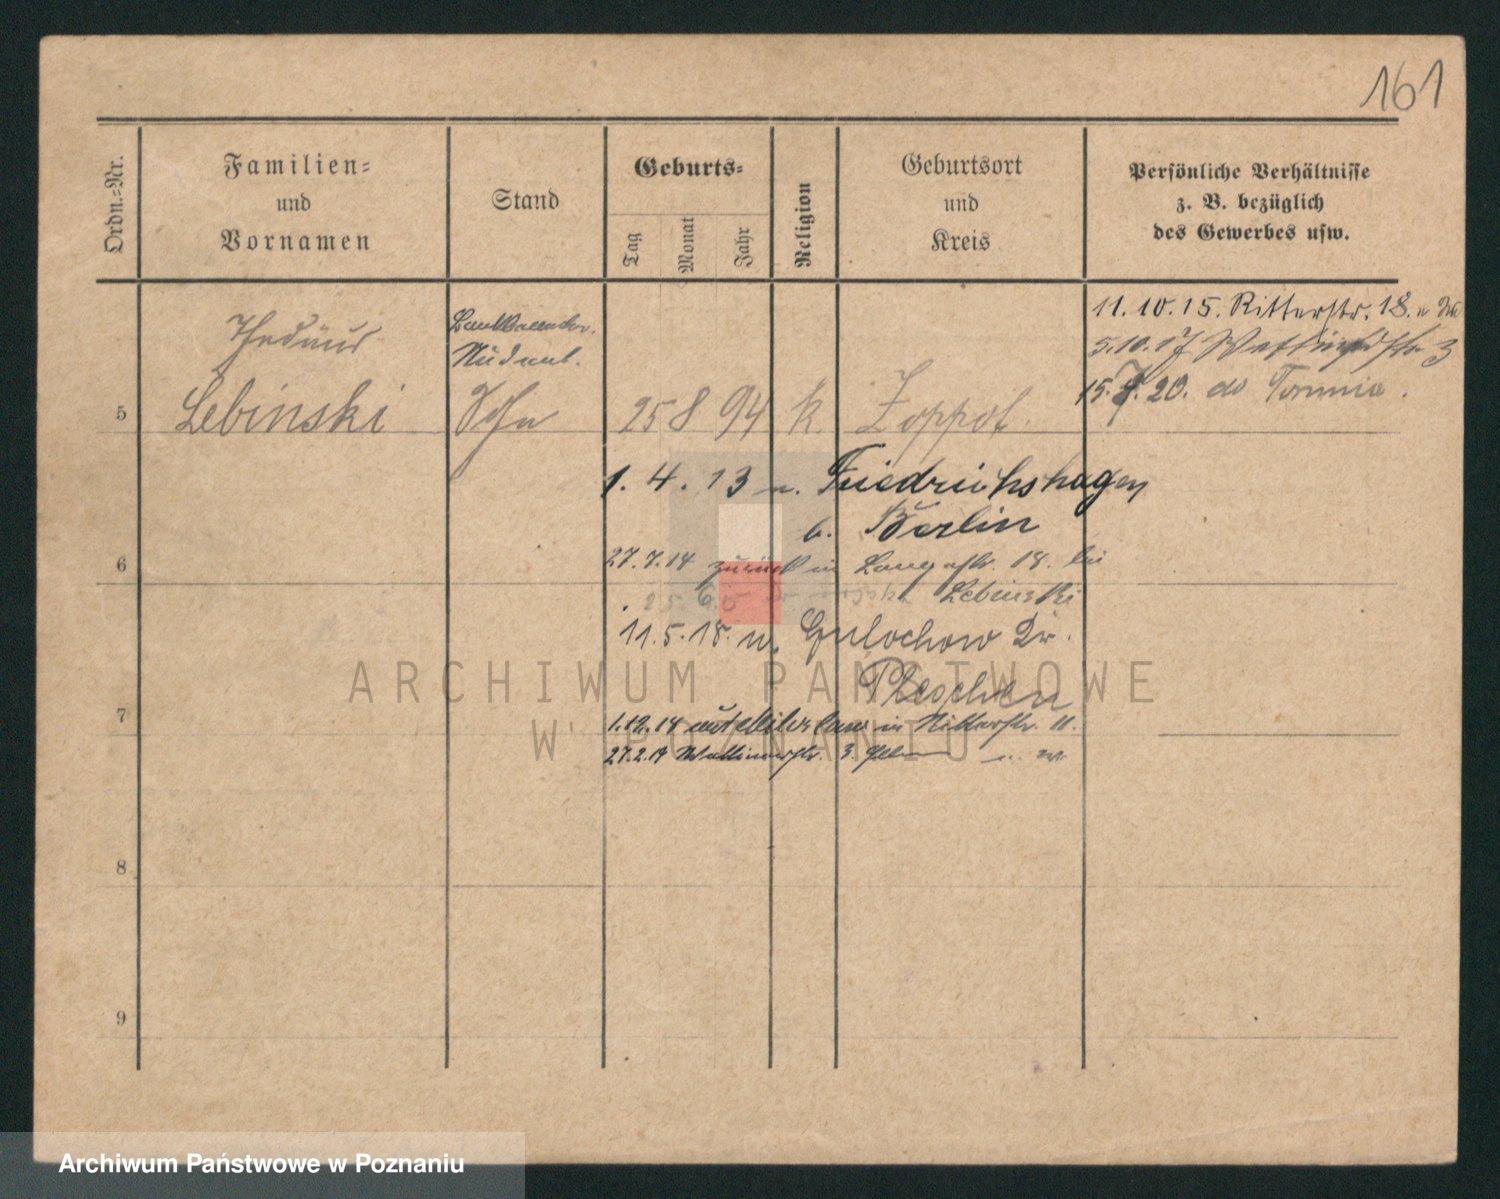 161
Ordn.-Nr.
Familien-
und
Vornamen
Stand
Geburts-
Tag
Monat
Jahr
Religion
Geburtsort
und
Kreis
Persönliche Verhältnisse
z. B. bezüglich
des Gewerbes usw.
Thedäus
Lebinski
Student.
Sohn
25 8 94 k. Zoppot.
11. 10. 15. Ritterstr. 18.
5. 10. 17
15. 20. do
5
1. 4. 13 n. Friedrichshagen
b. Berlin
6
27. 7. 14 zurück in Langestr. 18. bei
Lebinski
11. 5. 18. n.
Pleschen
7
1. 12. 18 in Ritterstr. 11.
27. 2. 19 3.
8
9
ARCHIWUM PAŃSTWOWE
W POZNANIU
Archiwum Państwowe w Poznaniu